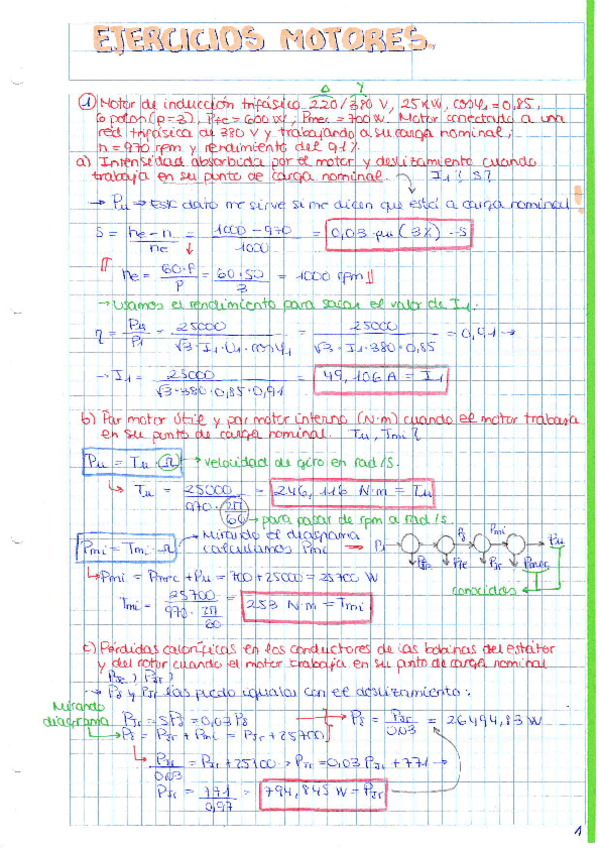 EJERCICIOS MOTORES.
Δ Y
① Motor de inducción trifásico 220/380 V, 25 kW, cosφ₁ = 0,85,
6 polos (p=3), Pfe = 600 W, Pmec = 700 W. Motor conectado a una
red trifásica de 380 V y trabajando a su carga nominal;
n = 970 rpm y rendimiento del 91%.
a) Intensidad absorbida por el motor y deslizamiento cuando
trabaja en su punto de carga nominal. I₁? S?
→ Pu → Este dato me sirve si me dicen que está a carga nominal !
S = (ne - n)/ne = (1000 - 970)/1000 = 0,03 pu (3%) = S
ne = 60·f/P = 60·50/3 = 1000 rpm
→ Usamos el rendimiento para sacar el valor de I₁.
η = Pu/P1 = 25000/(√3·I₁·U₁·cosφ₁) = 25000/(√3·I₁·380·0,85) = 0,91 →
→ I₁ = 25000/(√3·380·0,85·0,91) = 49,106 A = I₁
b) Par motor útil y par motor interno (N·m) cuando el motor trabaja
en su punto de carga nominal. Tu, Tmi?
Pu = Tu · Ω → velocidad de giro en rad/s.
Tu = 25000/(970 · 2π/60) = 246,116 N·m = Tu
para pasar de rpm a rad/s.
Pmi = Tmi · Ω → Mirando el diagrama
calculamos Pmi → P1 Pfe Pδ Pjr Pmi Pmec Pu
Pmi = Pmec + Pu = 700 + 25000 = 25700 W
conocidos
Tmi = 25700/(970 · 2π/60) = 253 N·m = Tmi
c) Pérdidas caloríficas en los conductores de las bobinas del estátor
y del rotor cuando el motor trabaja en su punto de carga nominal
Pje? Pjr?
→ Pδ y Pjr las puedo igualar con el deslizamiento:
Mirando
diagrama
Pjr = S·Pδ = 0,03 Pδ → Pδ = Pjr/0,03 = 26494,83 W
Pδ = Pjr + Pmi = Pjr + 25700
Pjr/0,03 = Pjr + 25700 → Pjr = 0,03 Pjr + 771 →
Pjr = 771/0,97 = 794,845 W = Pjr
1